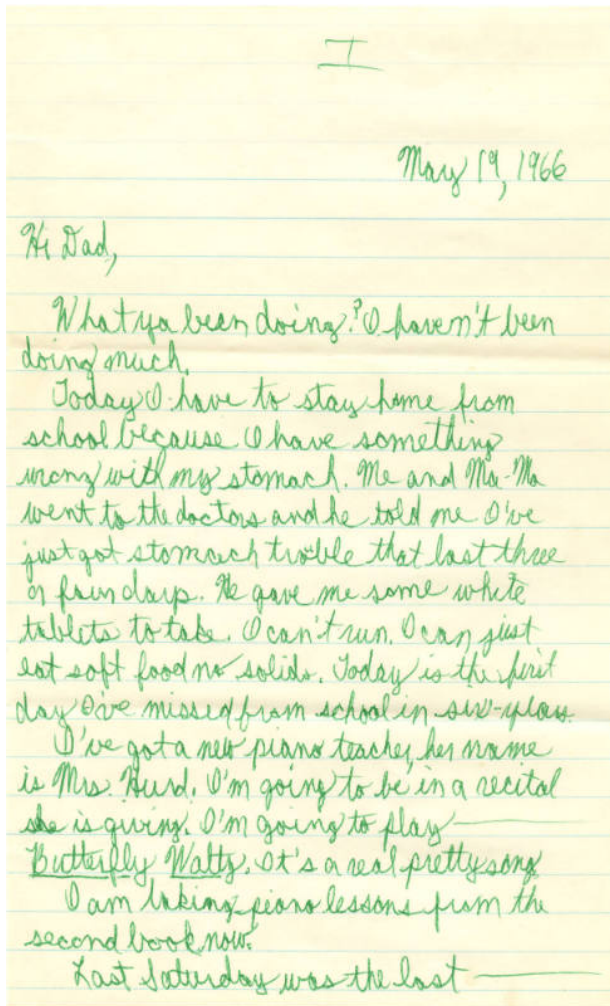 I
May 19, 1966
Hi Dad,
What ya been doing? I haven't been
doing much.
Today I have to stay home from
school because I have something
wrong with my stomach. Me and Ma-Ma
went to the doctors and he told me I've
just got stomach trouble that last three
or four days. He gave me some white
tablets to take. I can't run. I can just
eat soft food no solids. Today is the first
day I've missed from school in six-years.
I've got a new piano teacher, her name
is Mrs. Hurd. I'm going to be in a recital
she is giving. I'm going to play —
Butterfly Waltz. It's a real pretty song
I am taking piano lessons from the
second book now.
Last Saturday was the last —